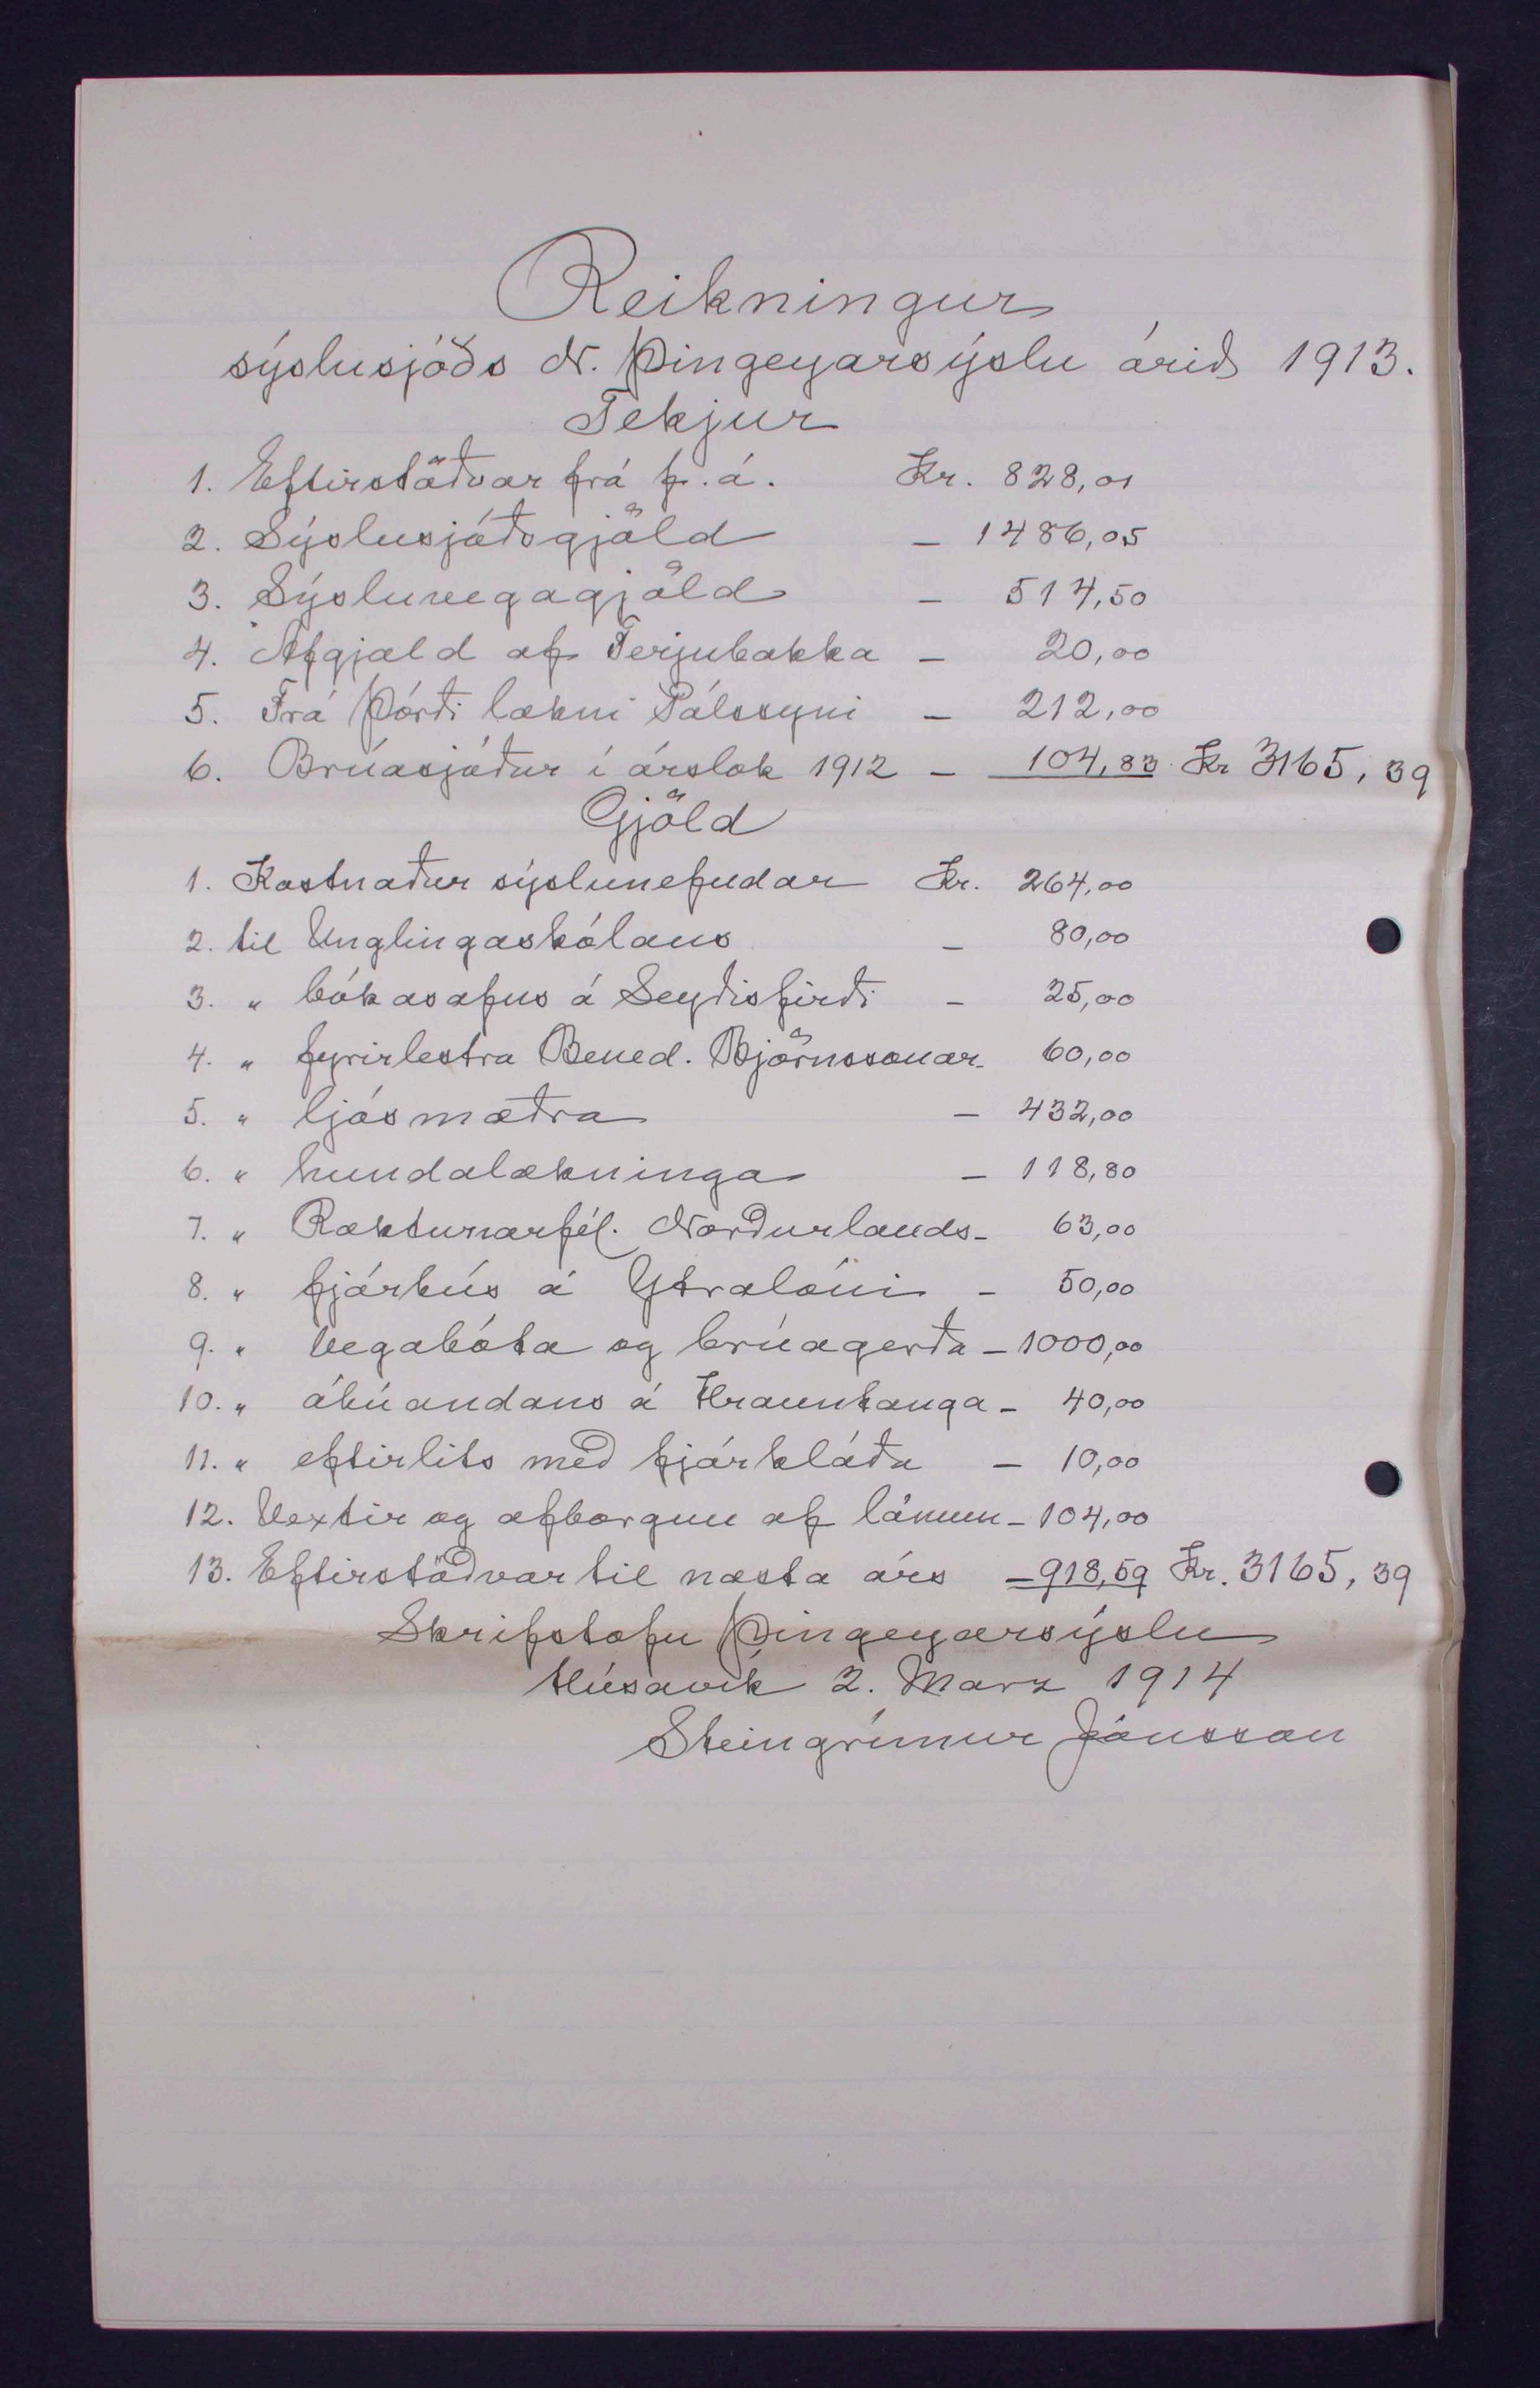 Reikningur
sýslusjóðs N. Þingeyarsýslu árið 1913.
Tekjur
1. Eftirstöðvar frá f. á. Kr. 828,01
2. Sýslusjóðsgjöld – 1486,05
3. Sýsluvegagjöld – 514,50
4. Afgjald af Ferjubakka – 20,00
5. Frá Þórði lækni Pálssyni – 212,00
6. Brúasjóður í árslok 1912 – 104,83 Kr 3165,39
Gjöld
1. Kostnaður sýslunefndar Kr. 264,00
2. til Unglingaskólans – 80,00
3. " bókasafns á Seyðisfirði – 25,00
4. " fyrirlestra Bened. Björnssonar – 60,00
5. " ljósmæðra – 432,00
6. " hundalækninga – 118,80
7. " Ræktunarfél. Norðurlands – 63,00
8. " fjárhús á Ytralóni – 50,00
9. " vegabóta og brúagerða – 1000,00
10. " ábúandans á Hrauntanga – 40,00
11. " eftirlits með fjárkláða – 10,00
12. Vextir og afborgun af lánum – 104,00
13. Eftirstöðvar til næsta árs – 918,59 Kr. 3165,39
Skrifstofu Þingeyarsýslu
Húsavík 2. Marz 1914
Steingrímur Jónsson